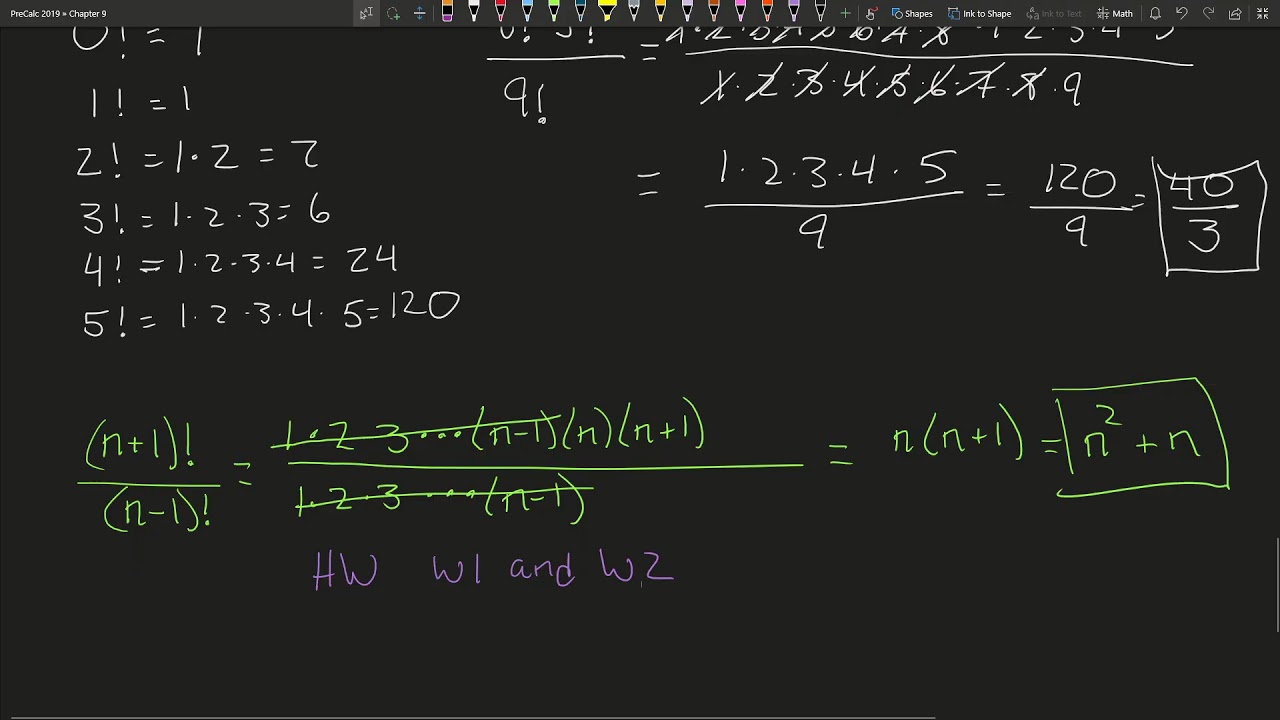 PreCalc 2019 » Chapter 9
Shapes Ink to Shape Ink to Text Math
0! = 1
1! = 1
2! = 1·2 = 2
3! = 1·2·3 = 6
4! = 1·2·3·4 = 24
5! = 1·2·3·4·5 = 120
9!
= 1·2·3·4·5·6·7·8·9
= 1·2·3·4·5 / 9 = 120 / 9 = 40 / 3
(n+1)! / (n-1)! = 1·2·3····(n-1)(n)(n+1) / 1·2·3·····(n-1) = n(n+1) = n² + n
HW W1 and W2